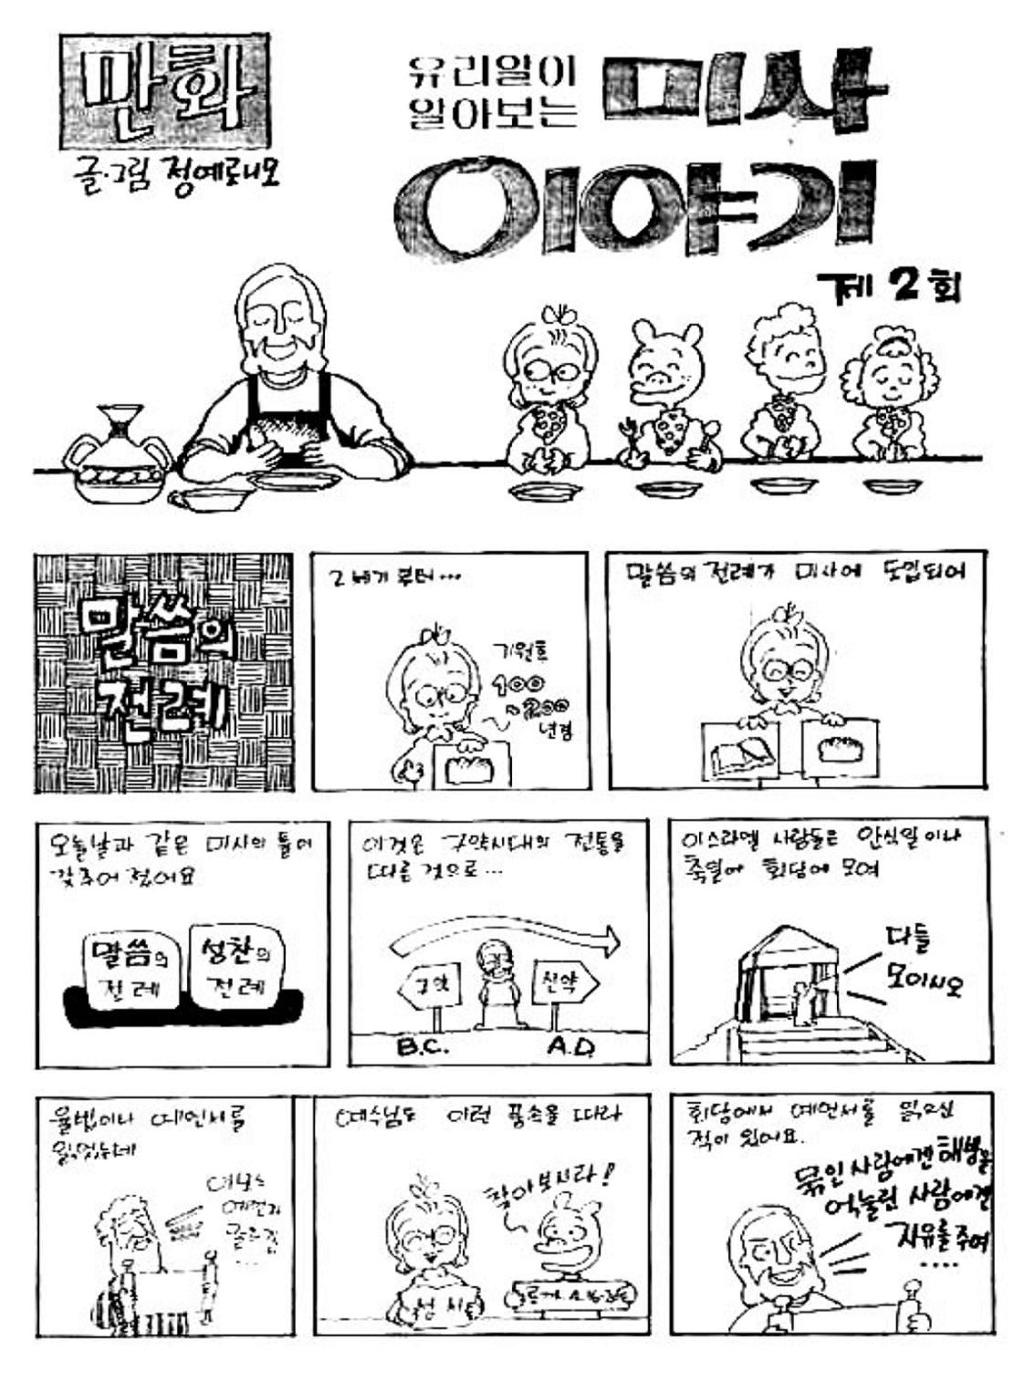 만화
글·그림 정예로니모
유리알이
알아보는
미사
이야기
제 2 회
말씀의
전례
2세기 부터...
기원후
100
~200
년경
말씀의 전례가 미사에 도입되어
오늘날과 같은 미사의 틀이
갖추어 졌어요
말씀의
전례
성찬의
전례
이것은 구약시대의 전통을
따를 것으로...
구약
신약
B.C.
A.D.
이스라엘 사람들은 안식일이나
축일에 회당에 모여
다들
모이시오
율법이나 예언서를
읽었는데
예수님도 이런 풍속을 따라
찾아보시라!
성서
회당에서 예언서를 읽으신
적이 있어요.
묶인 사람에겐 해방을
억눌린 사람에겐
자유를 주며
....